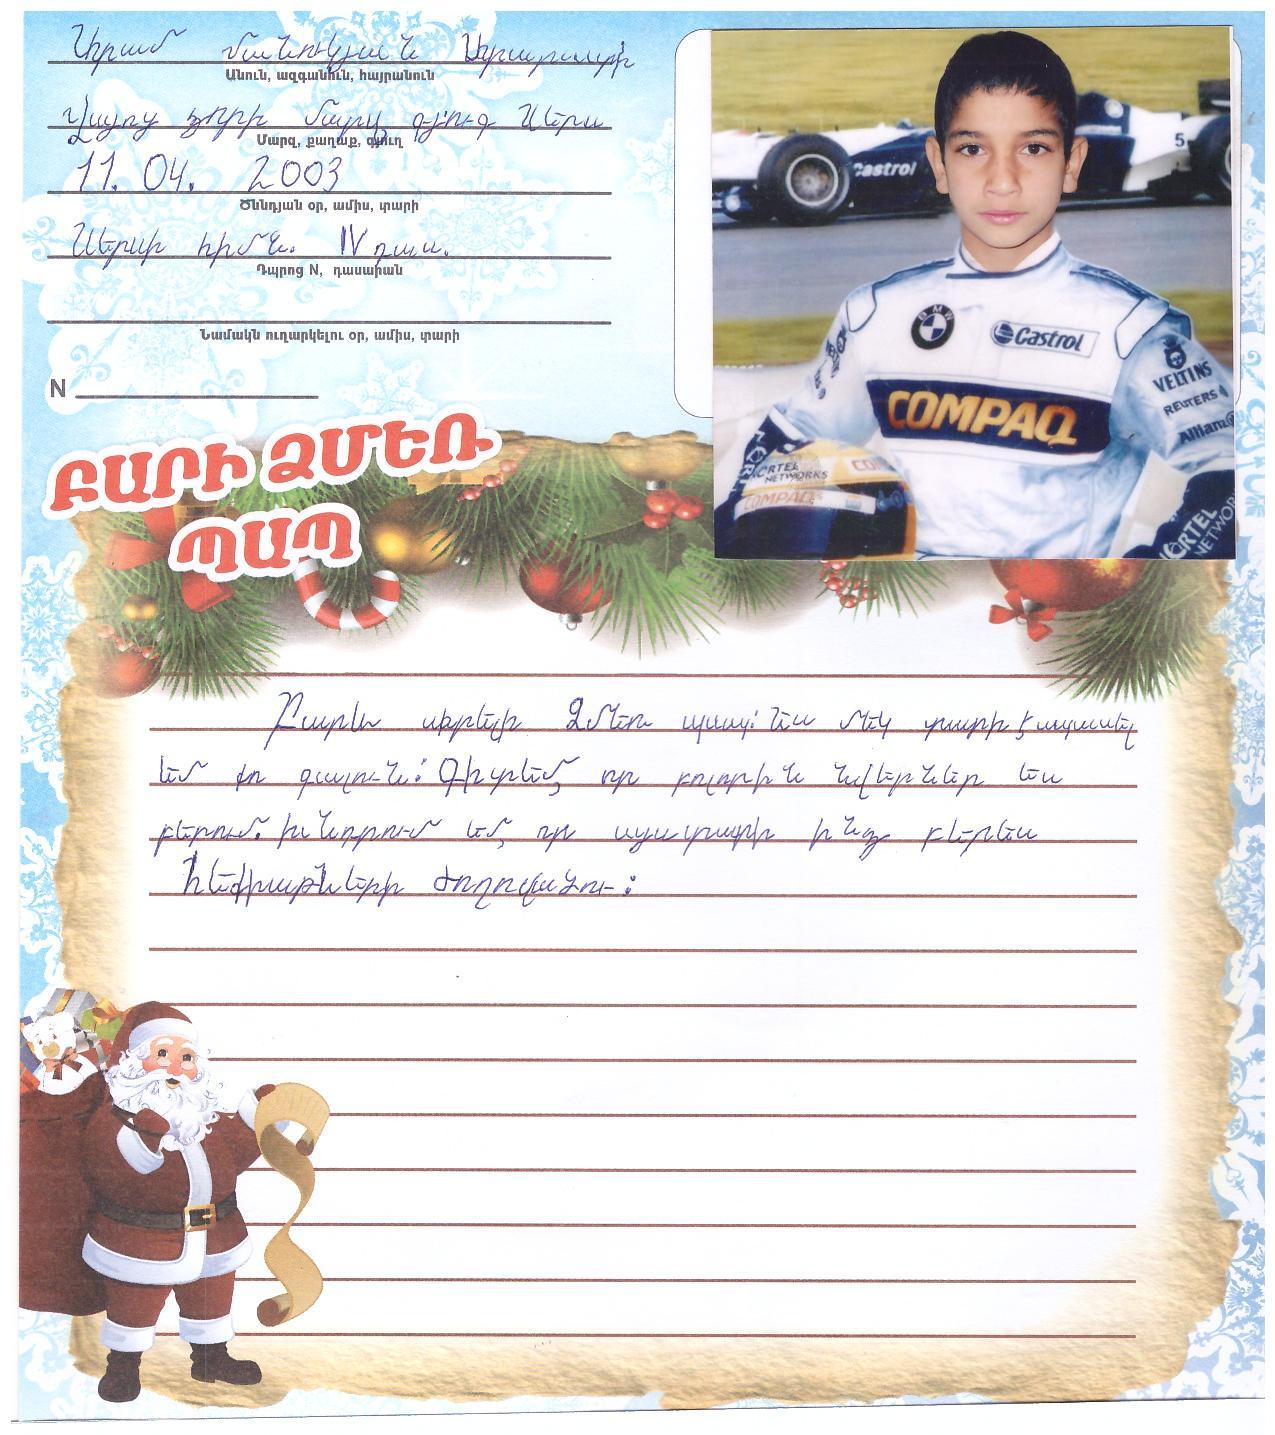 Արամ Մանուկյան Արարատի
Անուն, ազգանուն, հայրանուն
Վայոց ձորի մարզ գյուղ Աերա
Մարզ, քաղաք, գյուղ
11. 04. 2003
Ծննդյան օր, ամիս, տարի
հիմն. IV դաս.
Դպրոց N, դասարան
Նամակն ուղարկելու օր, ամիս, տարի
N
ԲԱՐԻ ՁՄԵՌ
ՊԱՊ
5
Castrol
BMW
Castrol
COMPAQ
VELTINS
REUTERS
Allianz
NORTEL
NETWORKS
COMPAQ
NORTEL
NETWOR
Բարև սիրելի Ձմեռ պապ: Ես մեկ տարի է սպասել
եմ քո գալուն: Գիտեմ, որ բոլորին նվերներ ես
բերում. խնդրում եմ, որ այս տարի ինձ բերես
հեքիաթների ժողովածու: